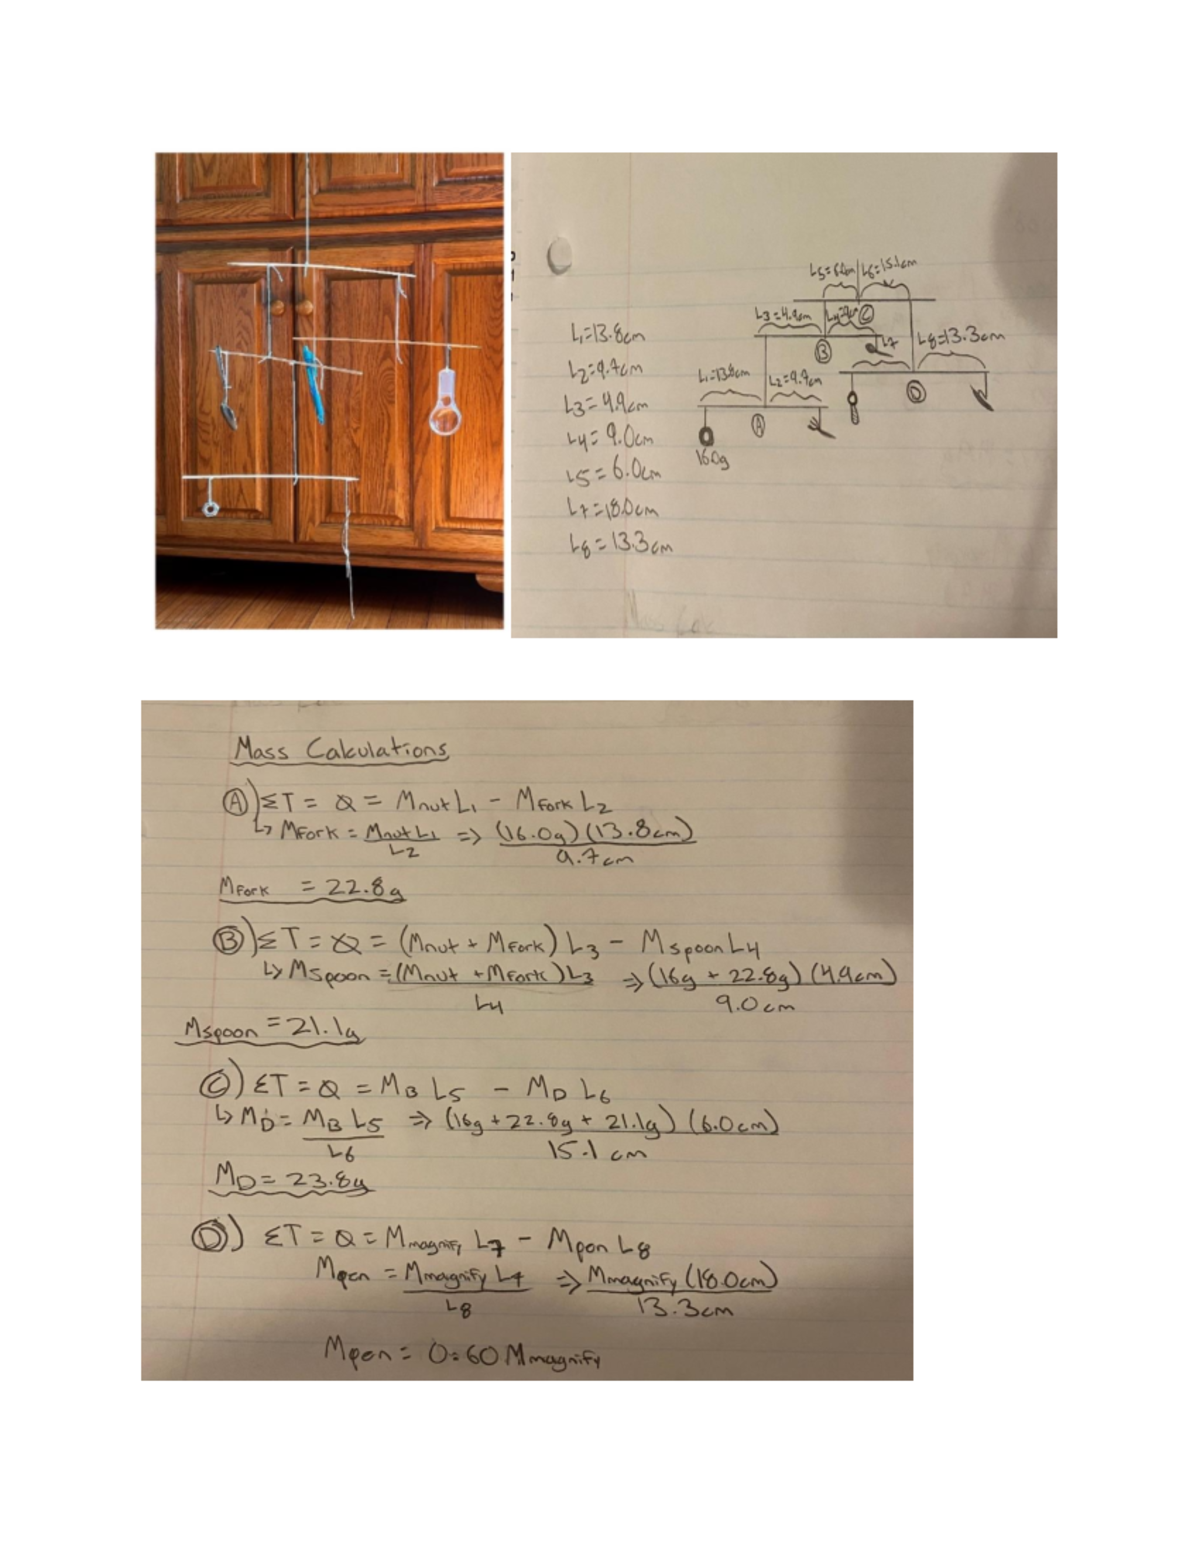 L1=13.8cm
L2=9.7cm
L3=4.9cm
L4=9.0cm
L5=6.0cm
L7=18.0cm
L8=13.3cm
L5=6.0cm L6=15.1cm
L3=4.9cm C
B L7 L8=13.3cm
L1=13.8cm L2=9.7cm
A D
16.0g
Mass Calculations
A) ΣT = 0 = Mnut L1 - MFork L2
↳ MFork = Mnut L1 / L2 => (16.0g)(13.8cm) / 9.7cm
MFork = 22.8g
B) ΣT = 0 = (Mnut + MFork) L3 - Mspoon L4
↳ Mspoon = (Mnut + MFork) L3 / L4 => (16g + 22.8g)(4.9cm) / 9.0cm
Mspoon = 21.1g
C) ΣT = 0 = MB L5 - MD L6
↳ MD = MB L5 / L6 => (16g + 22.8g + 21.1g)(6.0cm) / 15.1cm
MD = 23.8g
D) ΣT = 0 = Mmagnify L7 - Mpen L8
Mpen = Mmagnify L7 / L8 => Mmagnify (18.0cm) / 13.3cm
Mpen = 0.60 Mmagnify